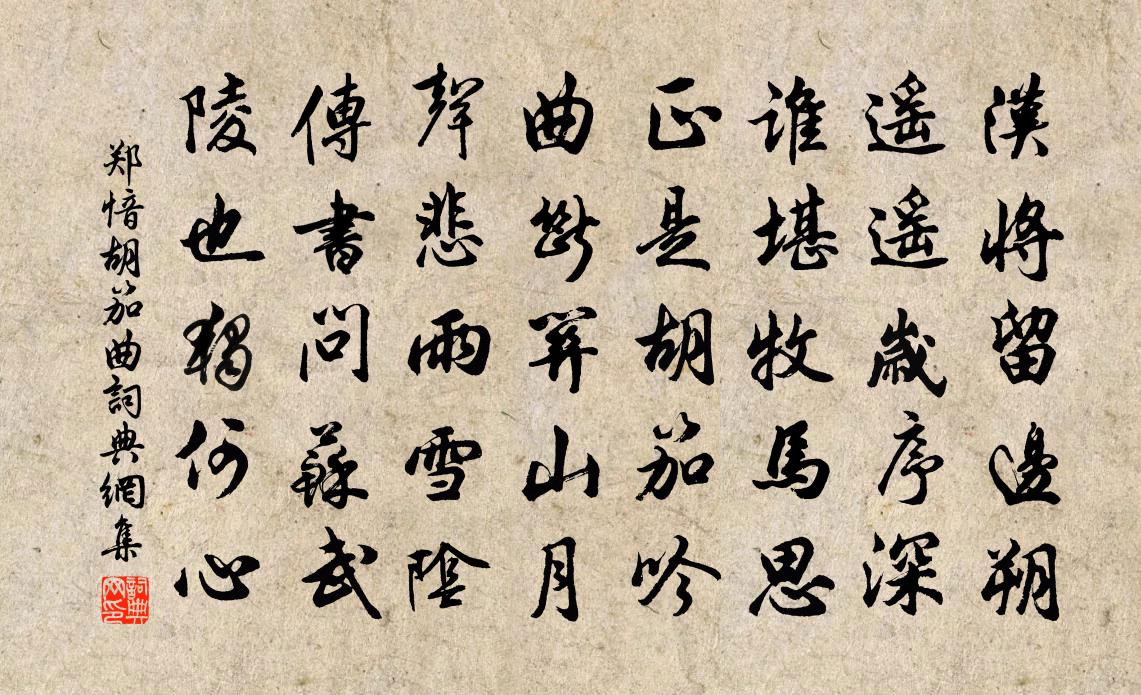 漢將留邊朔
遥遥歲序深
誰堪牧馬思
正是胡笳吟
曲斷關山月
聲悲雨雪陰
傳書問蘇武
陵也獨何心
郑愔胡笳曲詞典網集